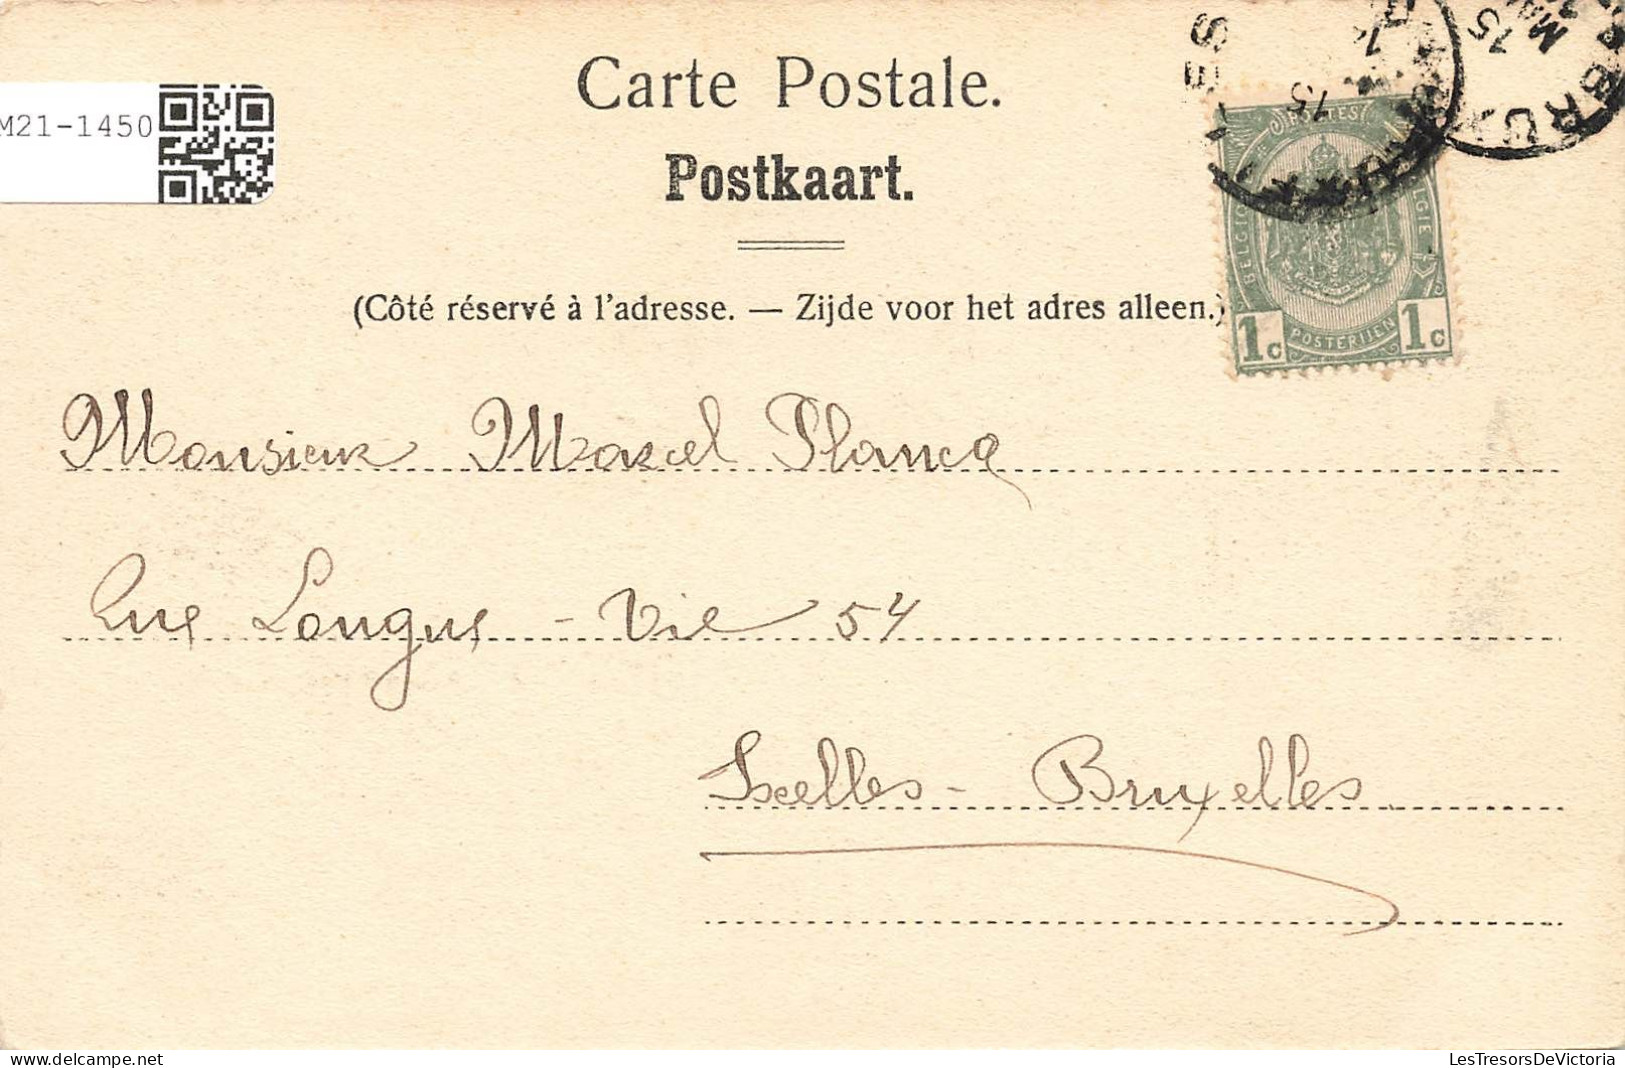 Carte Postale.
M21-1450
Postkaart.
(Côté réservé à l'adresse. — Zijde voor het adres alleen.)
POSTES
BELGIQUE BELGIE
1c POSTERIJEN 1c
15
15
Monsieur Marcel Plancq
Rue Longue - Vie 54
Ixelles - Bruxelles
delcampe.net
LesTresorsDeVictoria